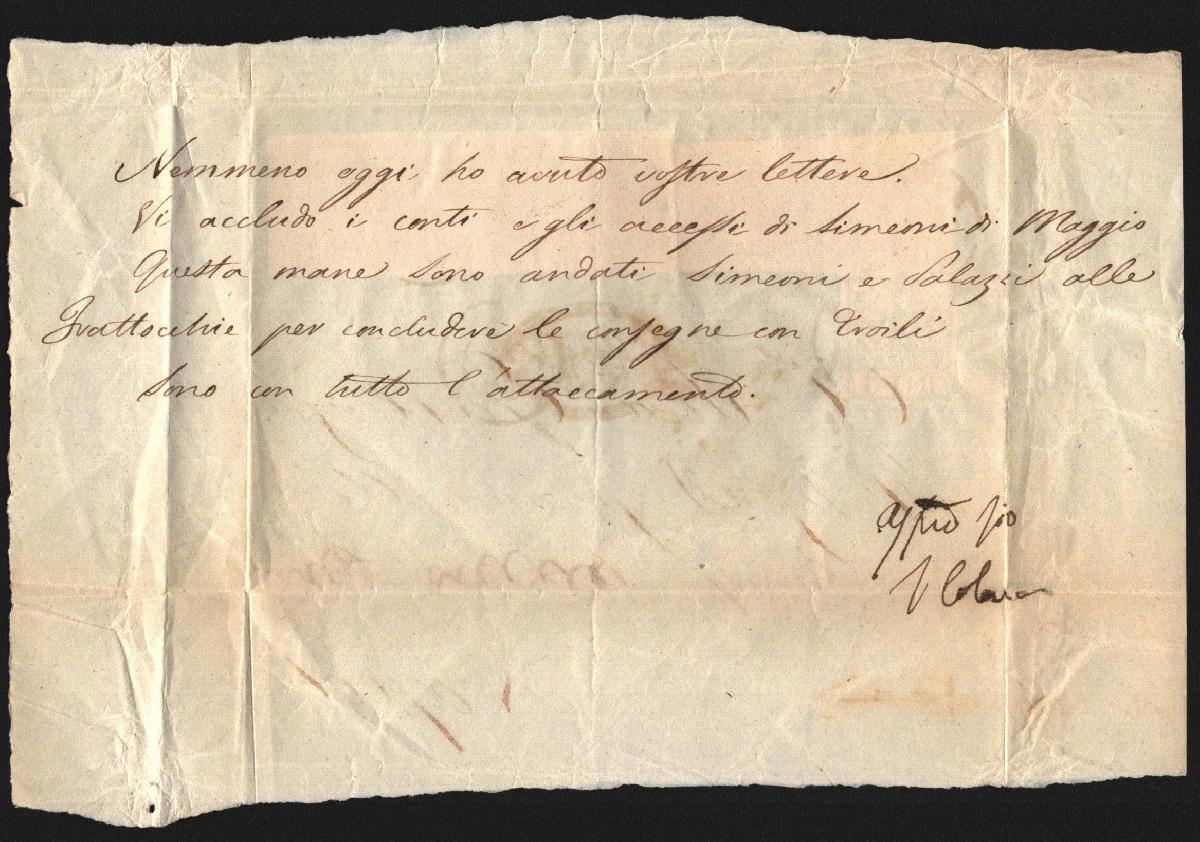 Nemmeno oggi ho avuto vostre lettere.
Vi accludo i conti e gli accessi di Simeoni di Maggio
Questa mane sono andati Simeoni e Palazzi alle
Frattocchie per concludere le consegne con Troili
Sono con tutto l'attaccamento.
affmo